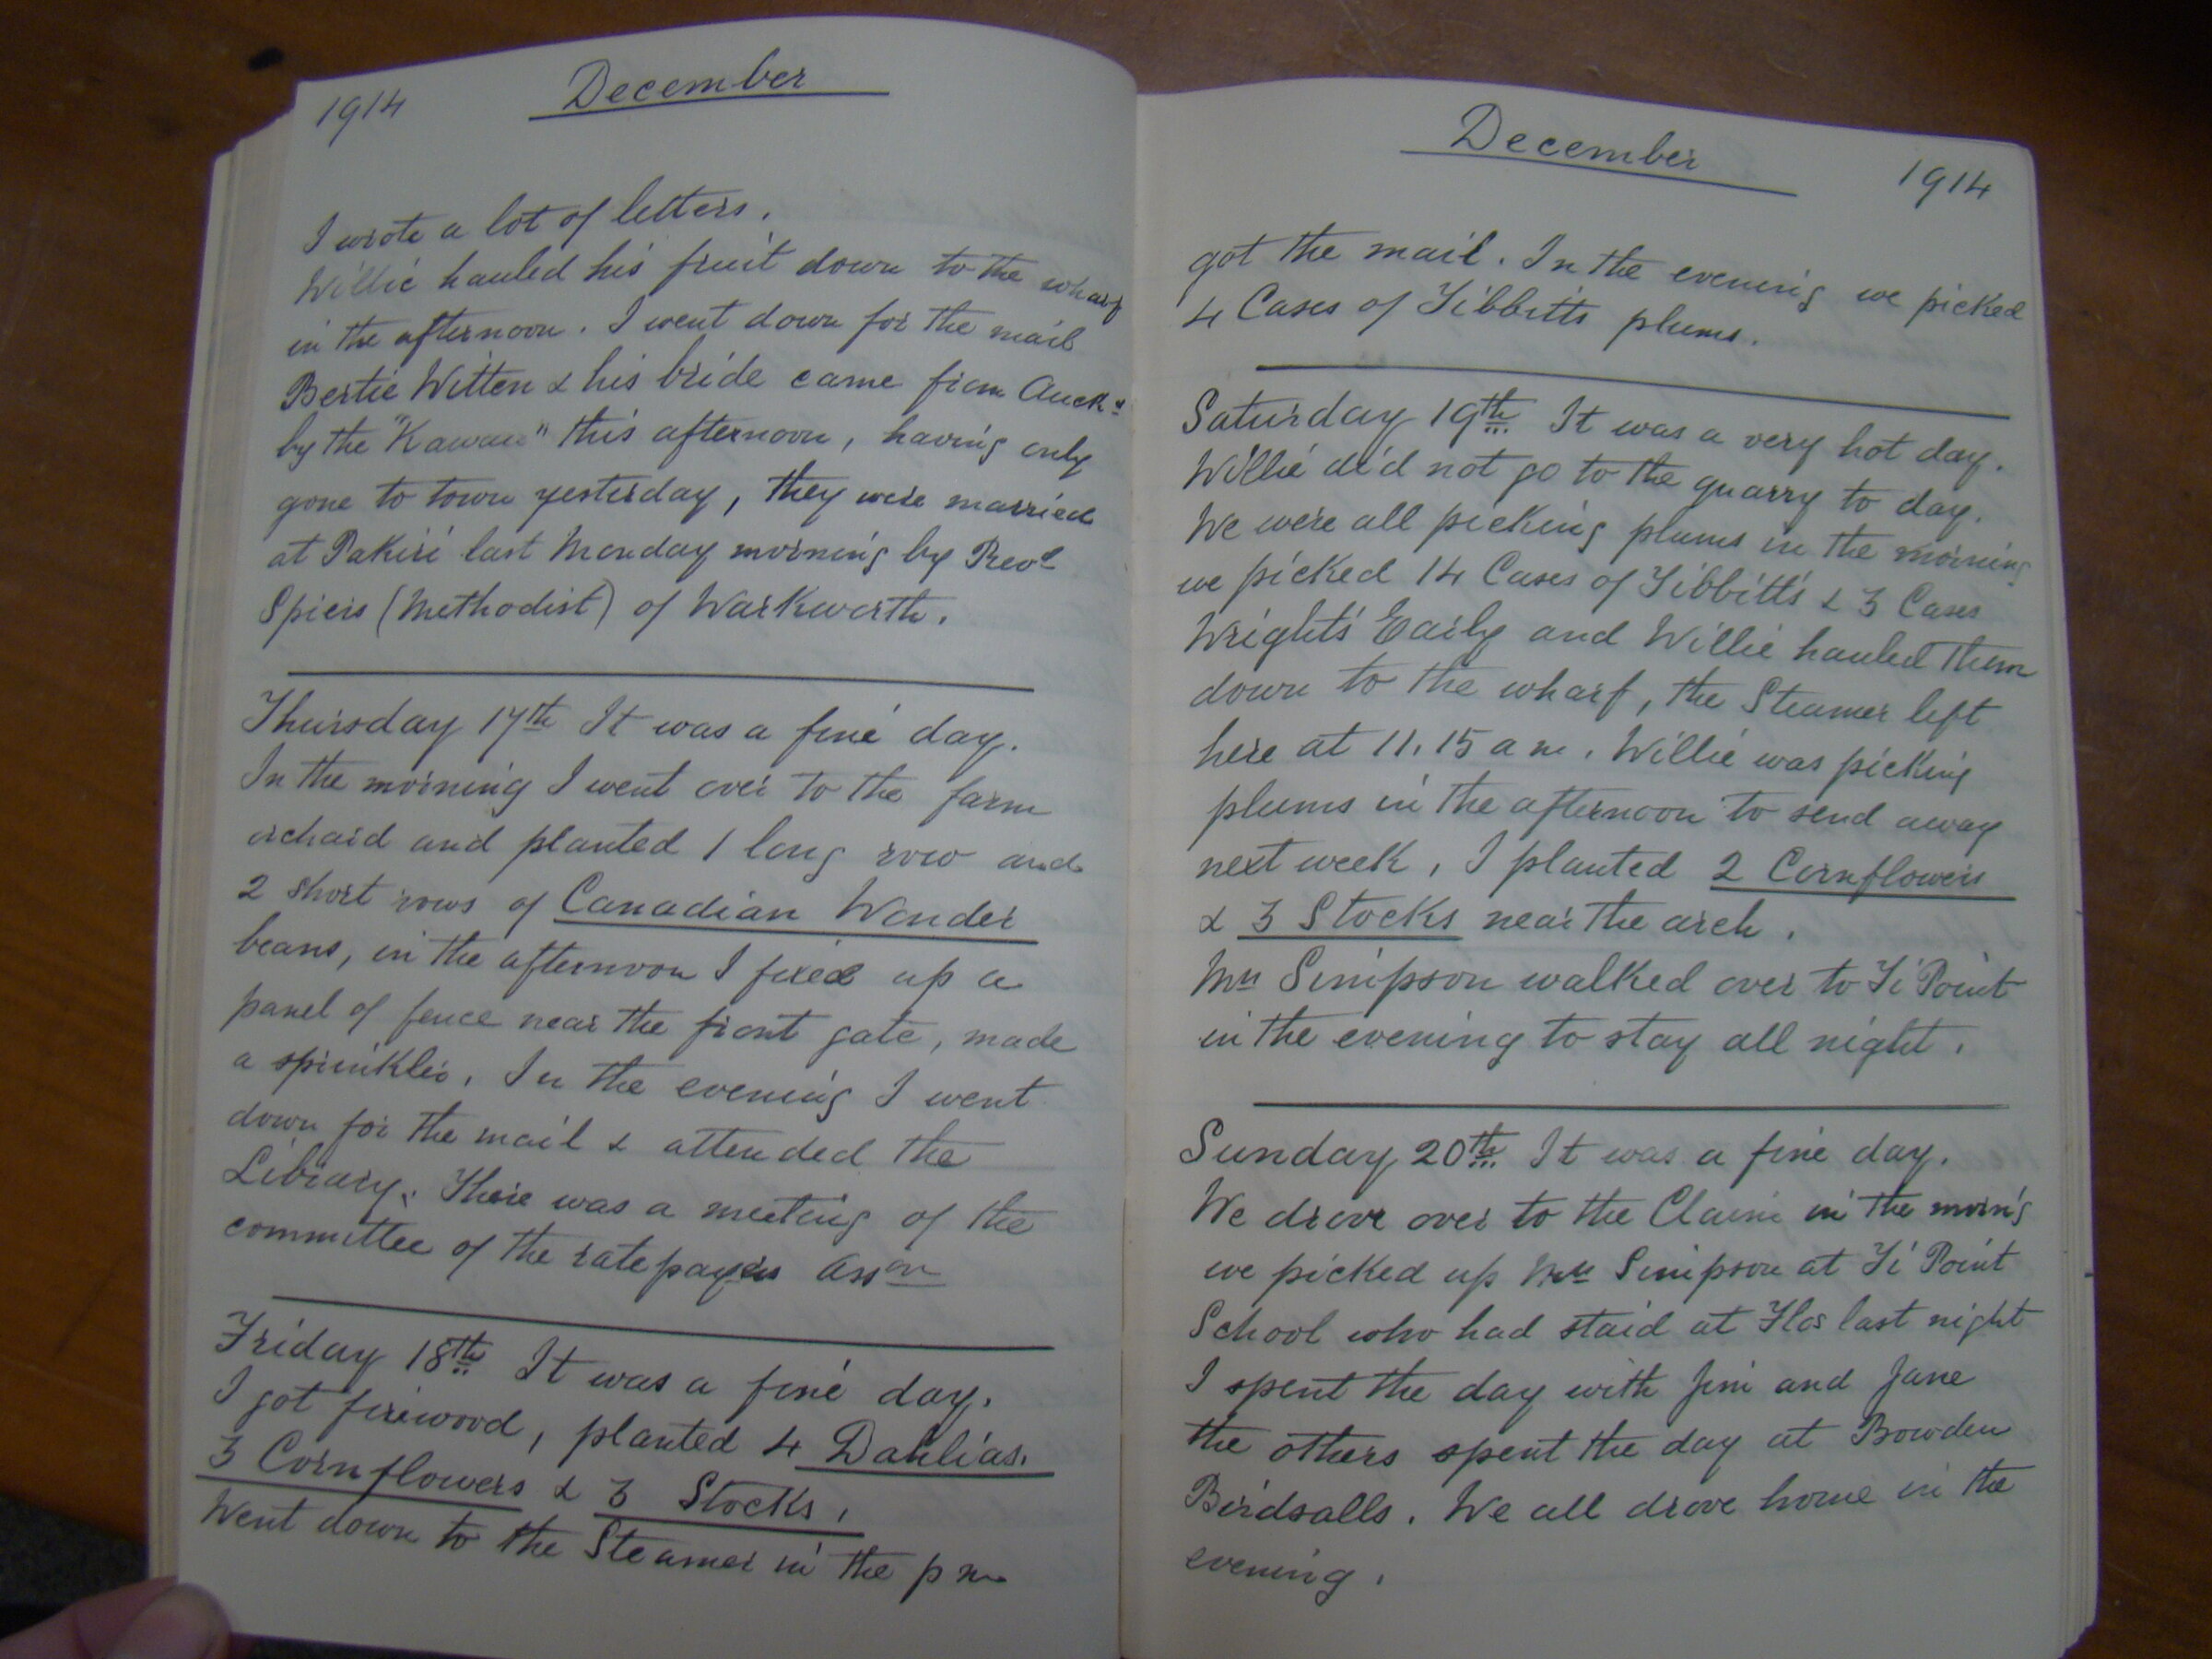 1914
December
I wrote a lot of letters.
Willie hauled his fruit down to the wharf
in the afternoon. I went down for the mail
Bertie Witten & his bride came from Auckd
by the "Kawau" this afternoon, having only
gone to town yesterday, they were married
at Pakiri last Monday morning by Revd
Spiers (Methodist) of Warkworth.
Thursday 17th It was a fine day.
In the morning I went over to the farm
orchard and planted 1 long row and
2 short rows of Canadian Wonder
beans, in the afternoon I fixed up a
panel of fence near the front gate, made
a sprinkler. In the evening I went
down for the mail & attended the
Library. There was a meeting of the
committee of the ratepayers Assn
Friday 18th It was a fine day.
I got firewood, planted 4 Dahlias.
3 Cornflowers & 3 Stocks.
Went down to the Steamer in the pm
December
1914
got the mail. In the evening we picked
4 Cases of Tibbitts plums.
Saturday 19th It was a very hot day.
Willie did not go to the quarry to day.
We were all picking plums in the morning
we picked 14 Cases of Tibbitts & 3 Cases
Wrights Early and Willie hauled them
down to the wharf, the Steamer left
here at 11.15 am. Willie was picking
plums in the afternoon to send away
next week, I planted 2 Cornflowers
& 3 Stocks near the arch.
Mrs Simpson walked over to Ti Point
in the evening to stay all night.
Sunday 20th It was a fine day.
We drove over to the Claim in the morng
we picked up Mrs Simpson at Ti Point
School who had staid at Flos last night
I spent the day with Jim and Jane
the others spent the day at Bowden
Birdsalls. We all drove home in the
evening.